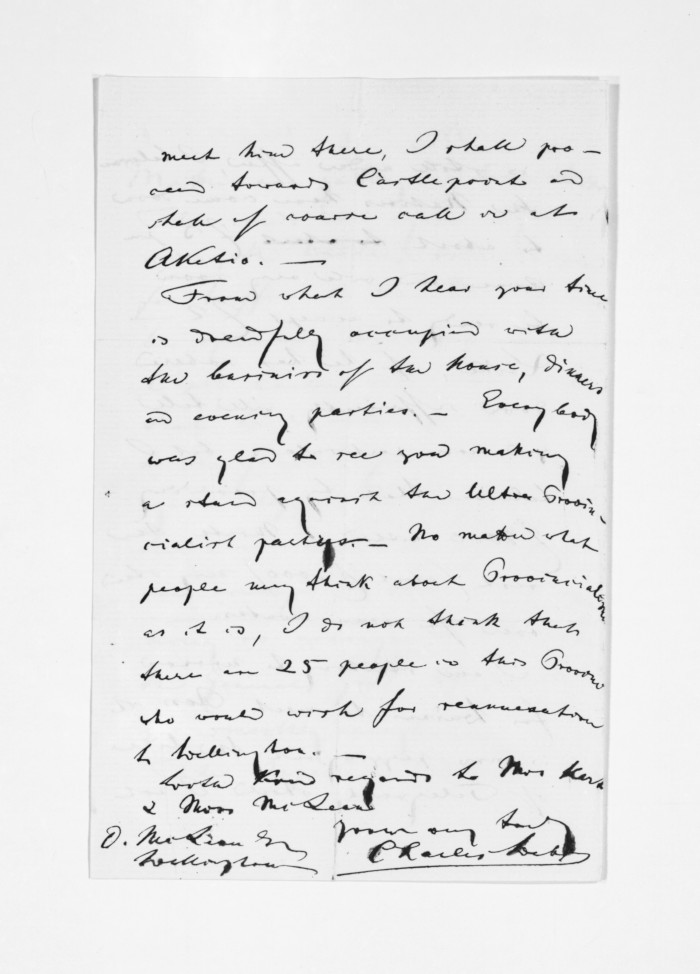 meet him there, I shall pro-
ceed towards Castlepoint and
shall of course call in at
Aketio. —
From what I hear your time
is dreadfully occupied with
the business of the house, dinners
and evening parties. — Everybody
was glad to see you making
a stand against the Ultra Provin-
cialist party. — No matter what
people may think about Provincialism
as it is, I do not think that
there are 25 people in this Province
who would wish for reannexation
to Wellington. —
With kind regards to Mrs
& Miss McLean
yours very truly
D. McLean Esq Charles Weber
Wellington